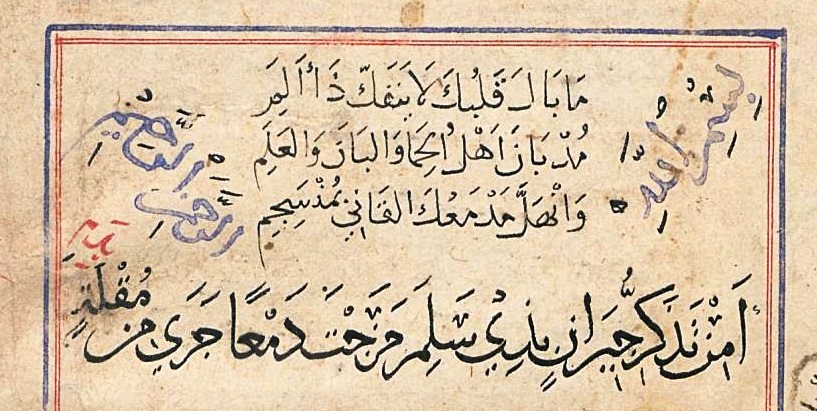 بِسْمِ اللهِ
الرَّحْمٰنِ الرَّحِيْمِ
مَا بَالَ قَلْبُكَ لَا يَنْفَكّ ذَا أَلَمِ
مُذْ بَانَ أَهْلُ الحِمَا وَالبَانَ وَالعَلَمِ
وَانْهَلَّ مَدْمَعُكَ القَانِيْ بمُنْسَجِمِ
أَمِنْ تَذَكُّرِ جِيْرَانٍ بِذِيْ سَلَمِ مَزَجْتَ دَمْعًا جَرَي مِنْ مُقْلَةٍ بِدَمِ